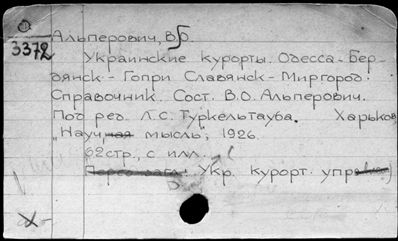 Альперович, В.О.
3372
Украинские курорты. Одесса-Бер-
дянск-Гопри Славянск-Миргород.
Справочник. Сост. В.О. Альперович.
Под ред. Л.С. Туркельтауба. Харьков
"Науч,ная мысль", 1926.
62стр., с илл.
Перед загл.: Укр. курорт. упр